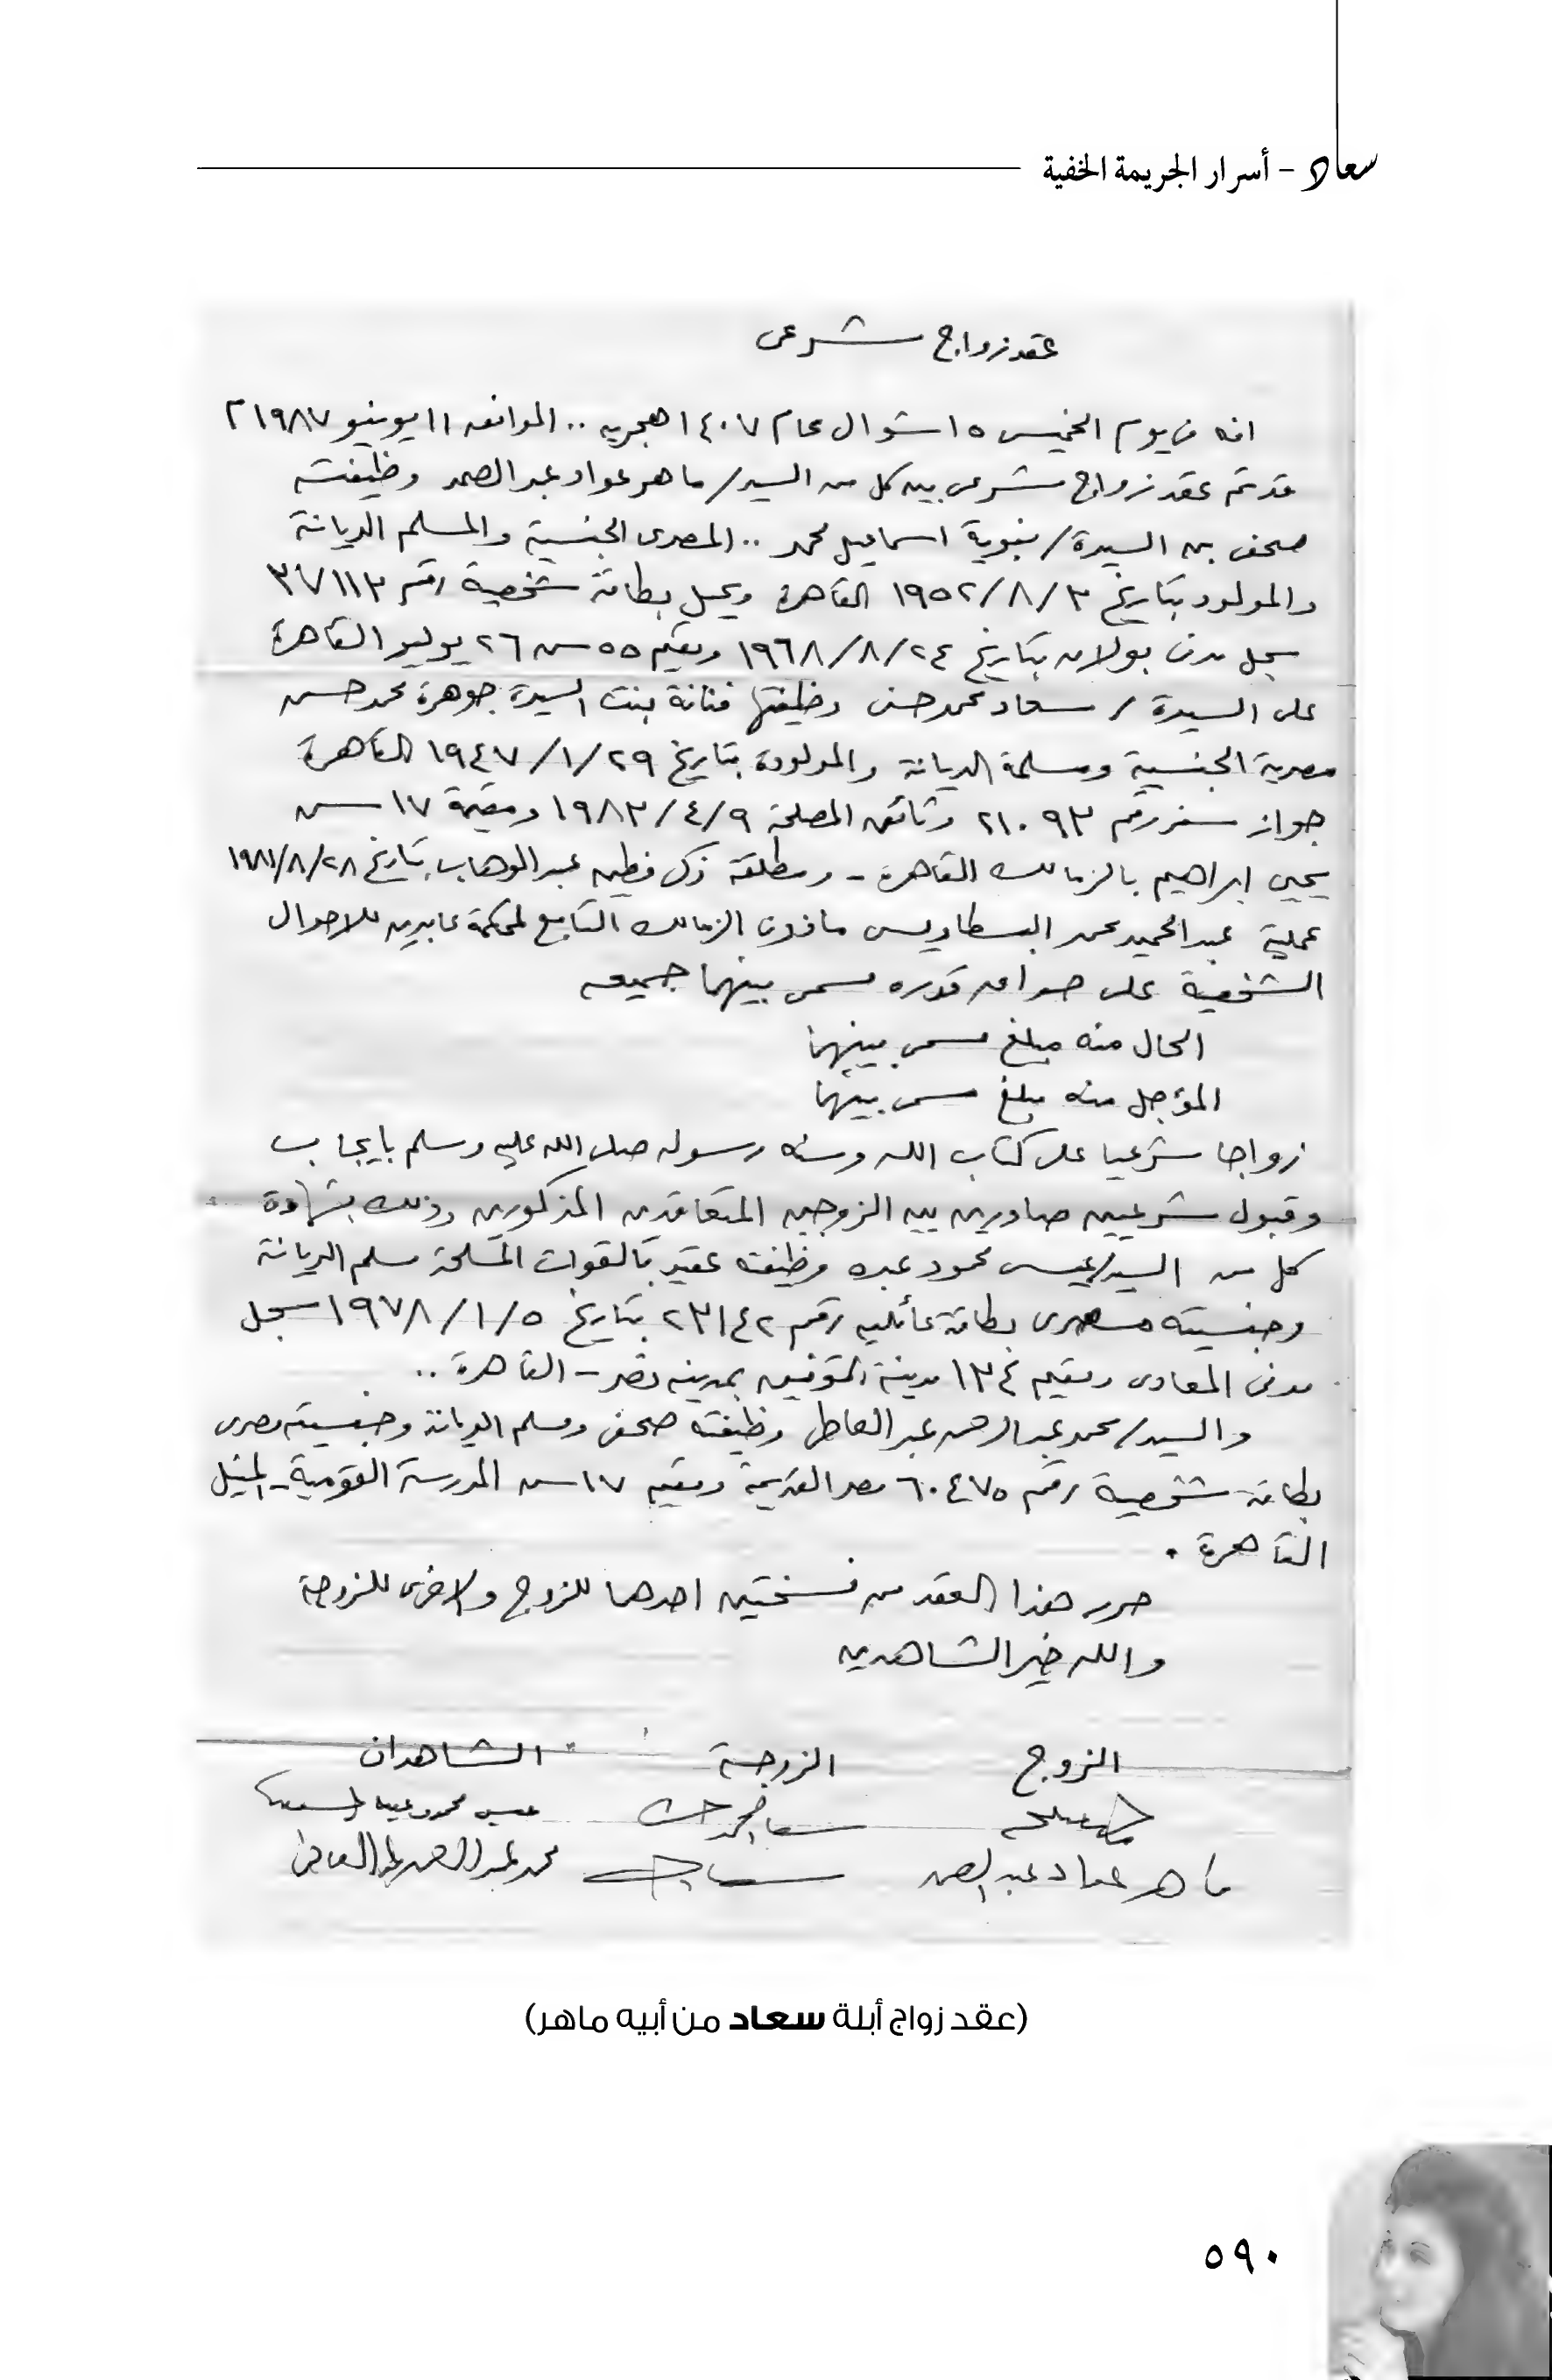 سعاد - أسرار الجريمة الخفية
عقد زواج شرعى
انه فى يوم الخميس ١٥ شوال عام ١٤٠٧ هجريه .. الموافق ١١ يونيو ١٩٨٧ م
قد تم عقد زواج شرعى بين كل من السيد / ماهر عواد عبد الصمد وظيفته
صحفى بن السيدة / نبوية اسماعيل محمد .. المصرى الجنسية والمسلم الديانة
والمولود بتاريخ ٣ / ٨ / ١٩٥٢ القاهرة ويحمل بطاقة شخصية رقم ٣٧١١٣
سجل مدنى بولاق بتاريخ ٢٤ / ٨ / ١٩٦٨ ومقيم ٥٥ ش ٢٦ يوليو القاهرة
على السيدة / سعاد محمد حسنى وظيفتها فنانة بنت السيدة جوهرة محمد حسن
مصرية الجنسية ومسلمة الديانة والمولودة بتاريخ ٢٩ / ١ / ١٩٤٧ القاهرة
جواز سفر رقم ٢١٠٩٣ وثائق المصلحة ٩ / ٤ / ١٩٨٣ ومقيمة ١٧ ش
يحيى ابراهيم بالزمالك القاهرة - ومطلقة زكى فطين عبد الوهاب بتاريخ ٢٨ / ٨ / ١٩٨١
عملية عبد الحميد محمد البسطاويسى ماذون الزمالك التابع لمحكمة عابدين للاحوال
الشخصية على صداق قدره مسمى بينهما جميعه
الحال منه مبلغ مسمى بينهما
المؤجل منه مبلغ مسمى بينهما
زواجا شرعيا على كتاب الله وسنه رسوله صلى الله عليه وسلم بايجاب
وقبول شرعيين صادرين بين الزوجين المتعاقدين المذكورين وذلك بشهادة
كل من السيد / عيسى محمود عبده وظيفته عقيد بالقوات المسلحة مسلم الديانة
وجنسيته مصرى بطاقة عائليه رقم ٢٣١٤٢ بتاريخ ٥ / ١ / ١٩٧٨ سجل
مدنى المعادى ومقيم ١٣٤ مدينة التوفيق بمدينه نصر - القاهرة ..
والسيد / محمد عبد الرحمن عبد العاطى وظيفته صحفى ومسلم الديانة وجنسيته مصرى
بطاقة شخصية رقم ٦٠٤٧٥ مصر القديمة ومقيم ١٧ ش المدرسة القومية - المنيل
القاهرة .
حرر هذا العقد من نسختين احدهما للزوج والاخرى للزوجة
والله خير الشاهدين
الزوج الزوجة الشاهدان
سعاد محمد حسنى عيسى محمود عبده
ماهر عواد عبد الصمد سعاد محمد عبد الرحمن عبد العاطى
(عقد زواج أبلة سعاد من أبيه ماهر)
٥٩٠